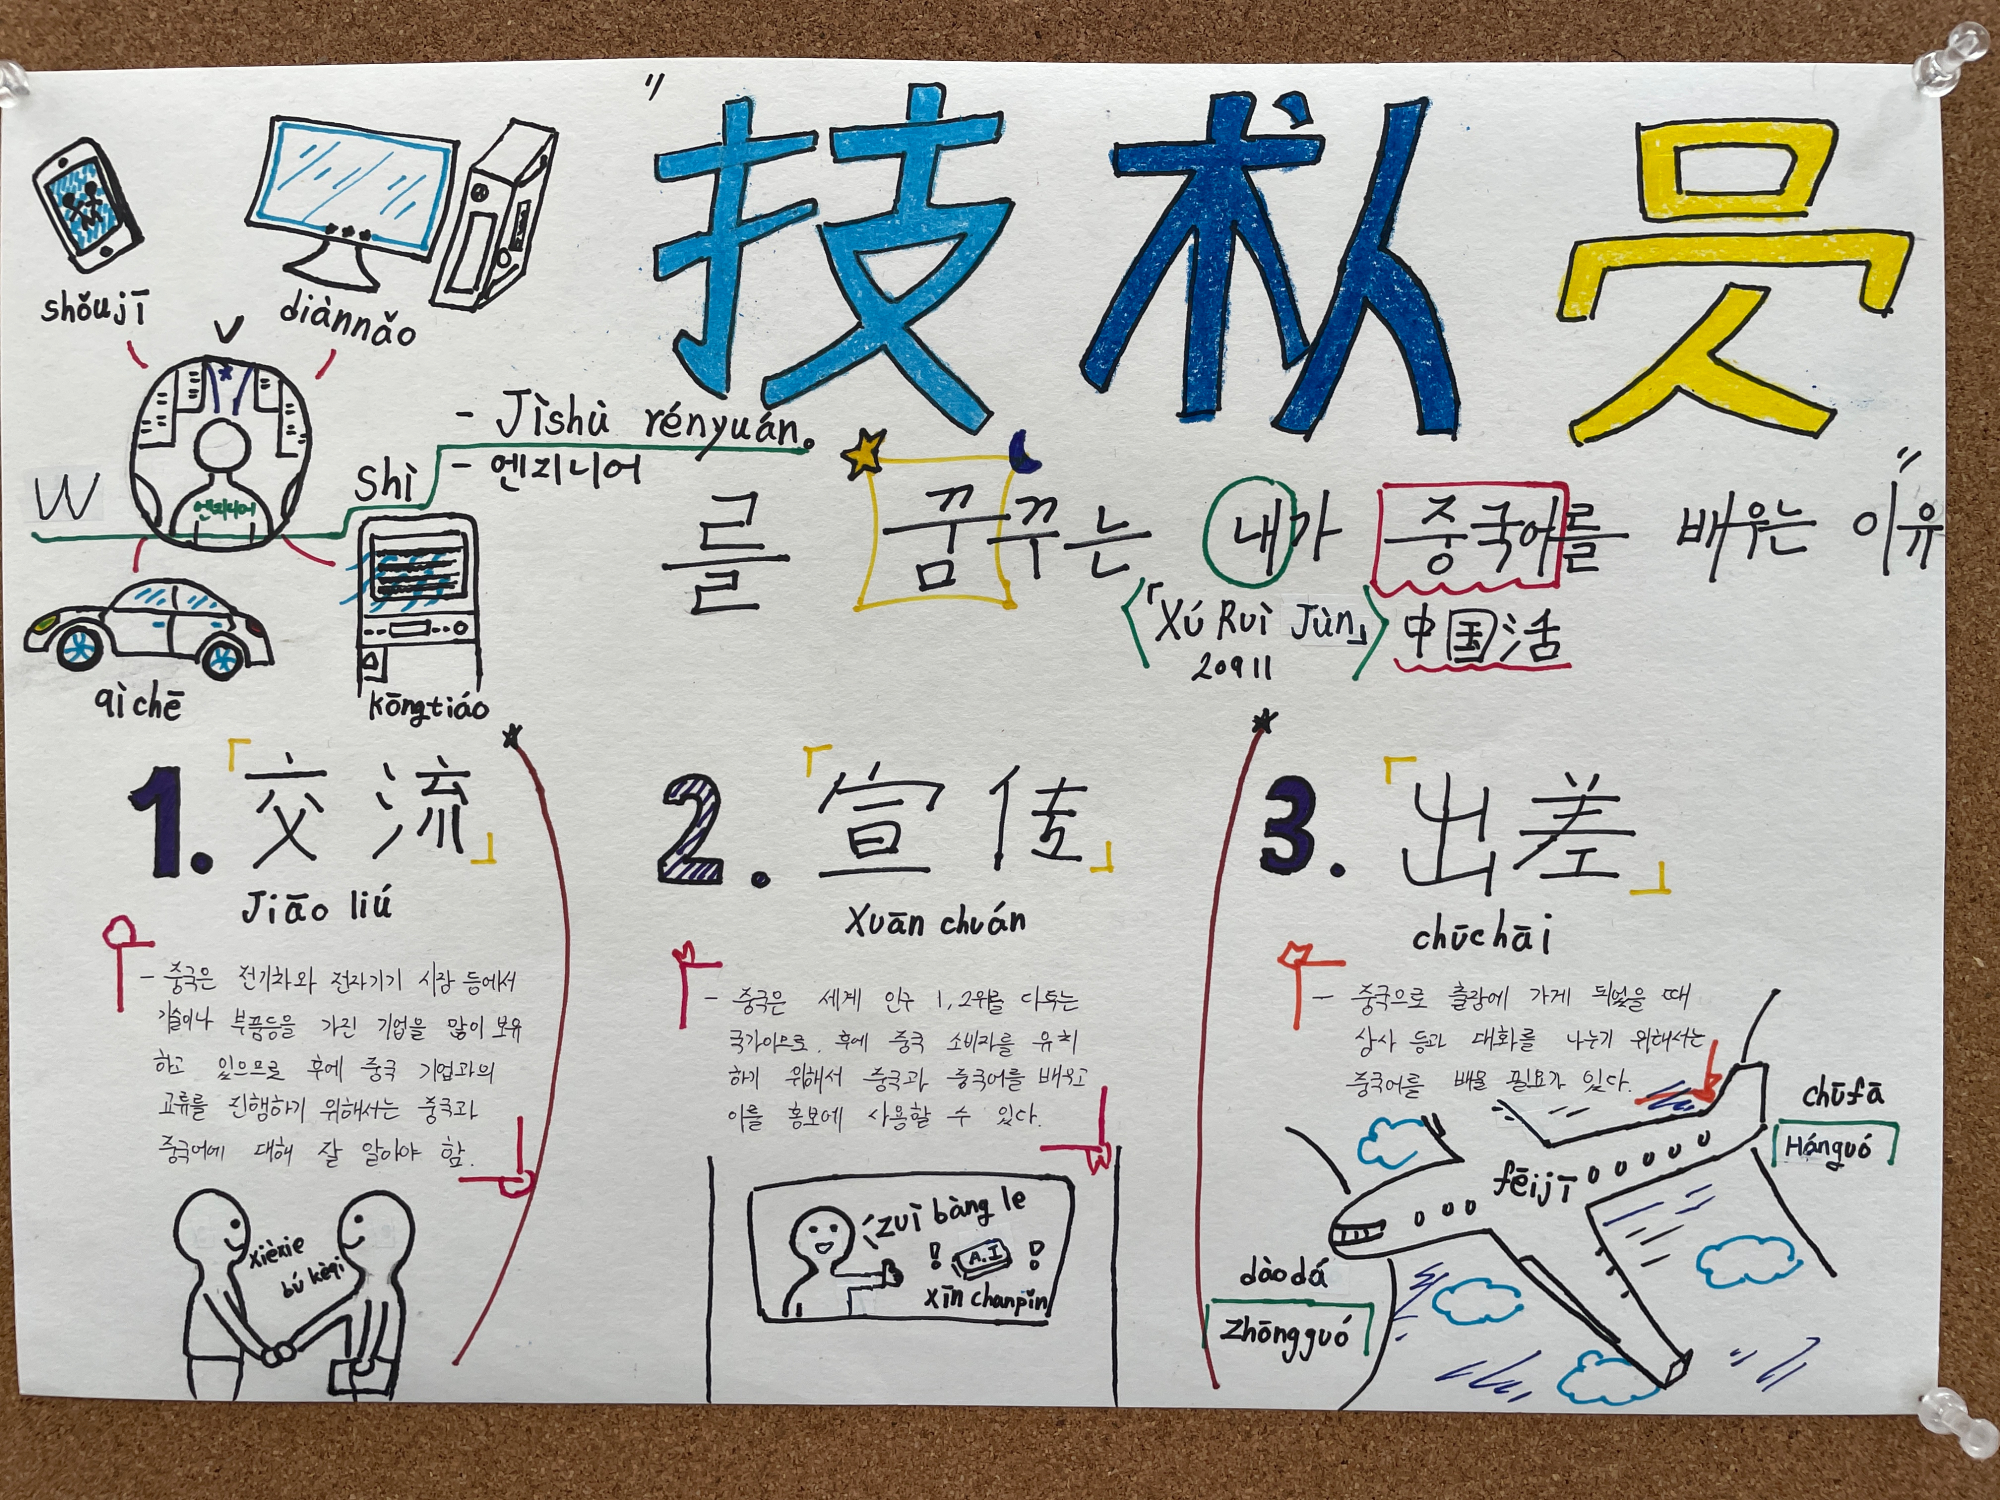 "技术人员"
shǒujī
diànnǎo
W
shì
- Jìshù rényuán。
- 엔지니어
엔지니어
를 꿈꾸는 내가 중국어를 배우는 이유
「Xú Ruì Jùn」
20911
中国活
qìchē
kōngtiáo
1. 「交流」
Jiāo liú
- 중국은 전기차와 전자기기 시장 등에서
기술이나 부품등을 가진 기업을 많이 보유
하고 있으므로 후에 중국 기업과의
교류를 진행하기 위해서는 중국과
중국어에 대해 잘 알아야 함.
xièxie
bú kèqi
2. 「宣传」
Xuān chuán
- 중국은 세계 인구 1,2위를 다투는
국가이므로, 후에 중국 소비자를 유치
하기 위해서 중국과 중국어를 배우고
이를 홍보에 사용할 수 있다.
zuì bàng le
! A.I !
xīn chanpǐn
3. 「出差」
chūchāi
- 중국으로 출장에 가게 되었을 때
상사 등과 대화를 나누기 위해서는
중국어를 배울 필요가 있다.
chūfā
Hánguó
fēijī
dàodá
Zhōngguó